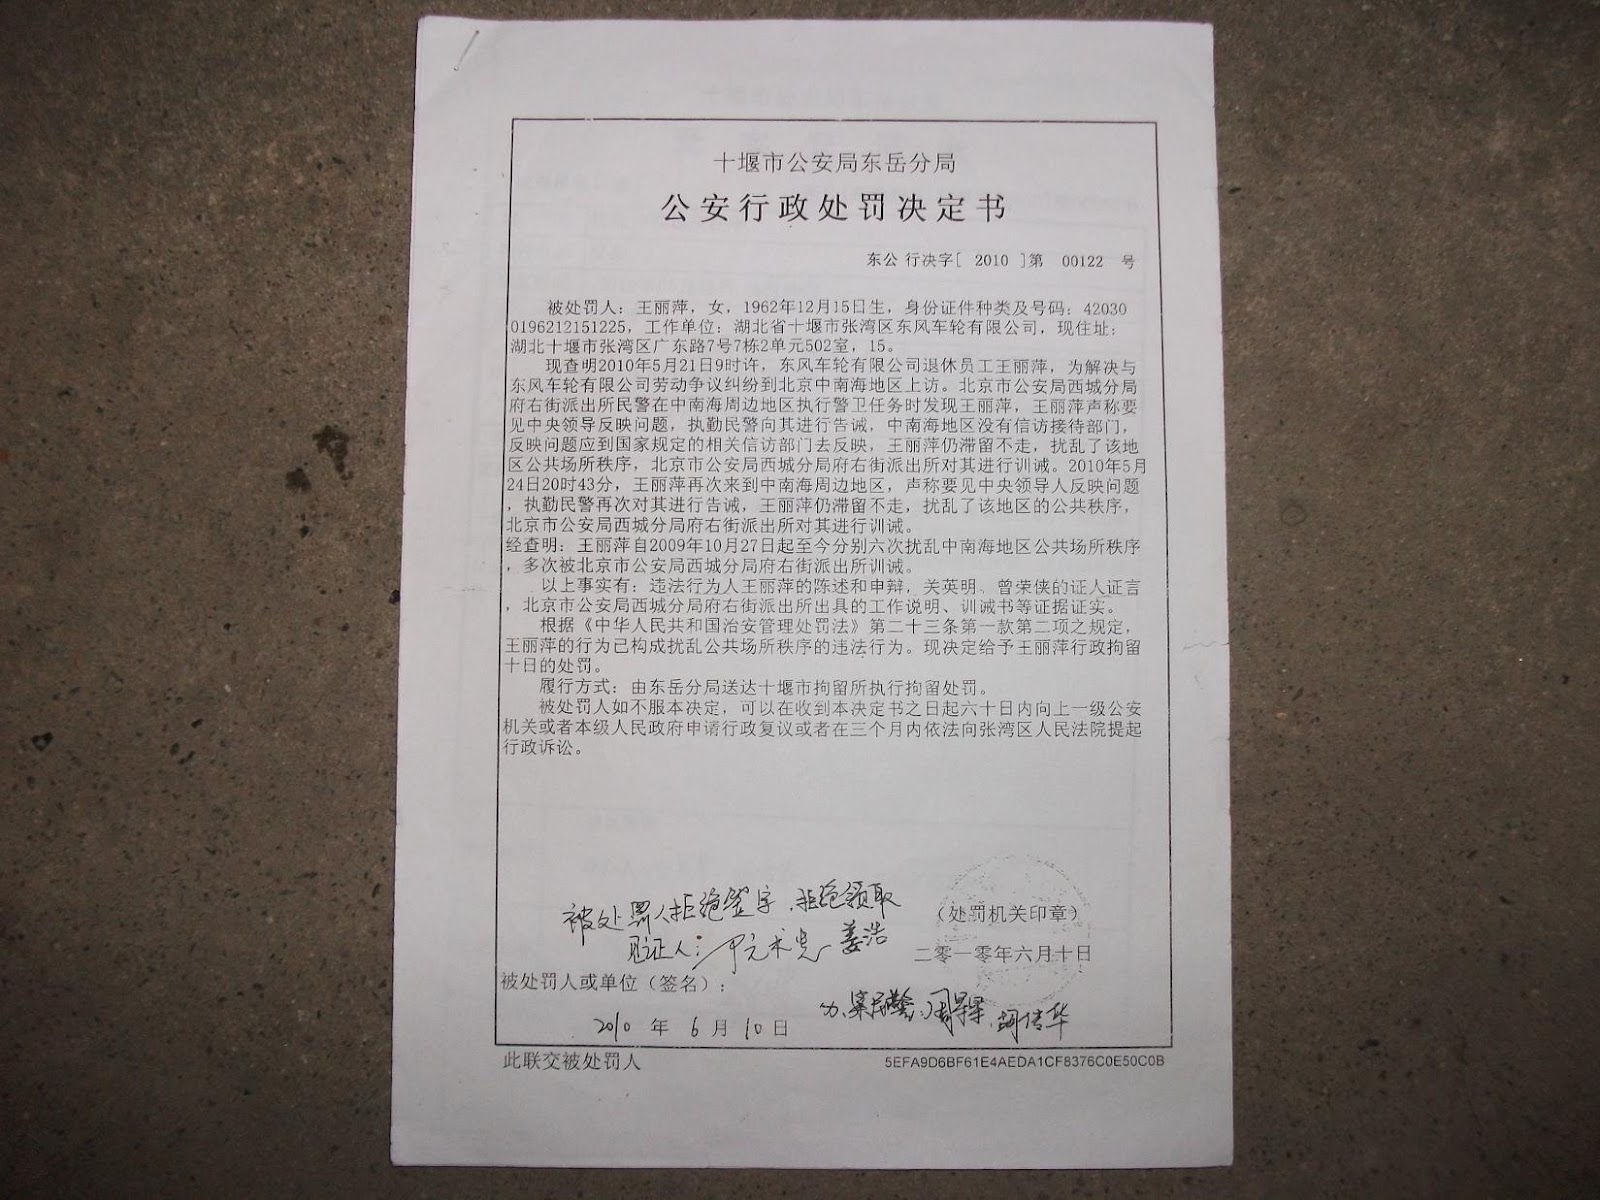 十堰市公安局东岳分局
公安行政处罚决定书
东公 行决字[ 2010 ]第 00122 号
被处罚人：王丽萍，女，1962年12月15日生，身份证件种类及号码：42030
0196212151225，工作单位：湖北省十堰市张湾区东风车轮有限公司，现住址：
湖北十堰市张湾区广东路7号7栋2单元502室，15。
现查明2010年5月21日9时许，东风车轮有限公司退休员工王丽萍，为解决与
东风车轮有限公司劳动争议纠纷到北京中南海地区上访。北京市公安局西城分局
府右街派出所民警在中南海周边地区执行警卫任务时发现王丽萍，王丽萍声称要
见中央领导反映问题，执勤民警向其进行告诫，中南海地区没有信访接待部门，
反映问题应到国家规定的相关信访部门去反映，王丽萍仍滞留不走，扰乱了该地
区公共场所秩序，北京市公安局西城分局府右街派出所对其进行训诫。2010年5月
24日20时43分，王丽萍再次来到中南海周边地区，声称要见中央领导人反映问题
，执勤民警再次对其进行告诫，王丽萍仍滞留不走，扰乱了该地区的公共秩序，
北京市公安局西城分局府右街派出所对其进行训诫。
经查明：王丽萍自2009年10月27日起至今分别六次扰乱中南海地区公共场所秩序
，多次被北京市公安局西城分局府右街派出所训诫。
以上事实有：违法行为人王丽萍的陈述和申辩，关英明、曾荣侠的证人证言
，北京市公安局西城分局府右街派出所出具的工作说明、训诫书等证据证实。
根据《中华人民共和国治安管理处罚法》第二十三条第一款第二项之规定，
王丽萍的行为已构成扰乱公共场所秩序的违法行为。现决定给予王丽萍行政拘留
十日的处罚。
履行方式：由东岳分局送达十堰市拘留所执行拘留处罚。
被处罚人如不服本决定，可以在收到本决定书之日起六十日内向上一级公安
机关或者本级人民政府申请行政复议或者在三个月内依法向张湾区人民法院提起
行政诉讼。
被处罚人拒绝签字、拒绝领取
（处罚机关印章）
见证人： 姜浩
二零一零年六月十日
被处罚人或单位（签名）：
办案民警：
2010 年 6 月 10 日
此联交被处罚人
5EFA9D6BF61E4AEDA1CF8376C0E50C0B